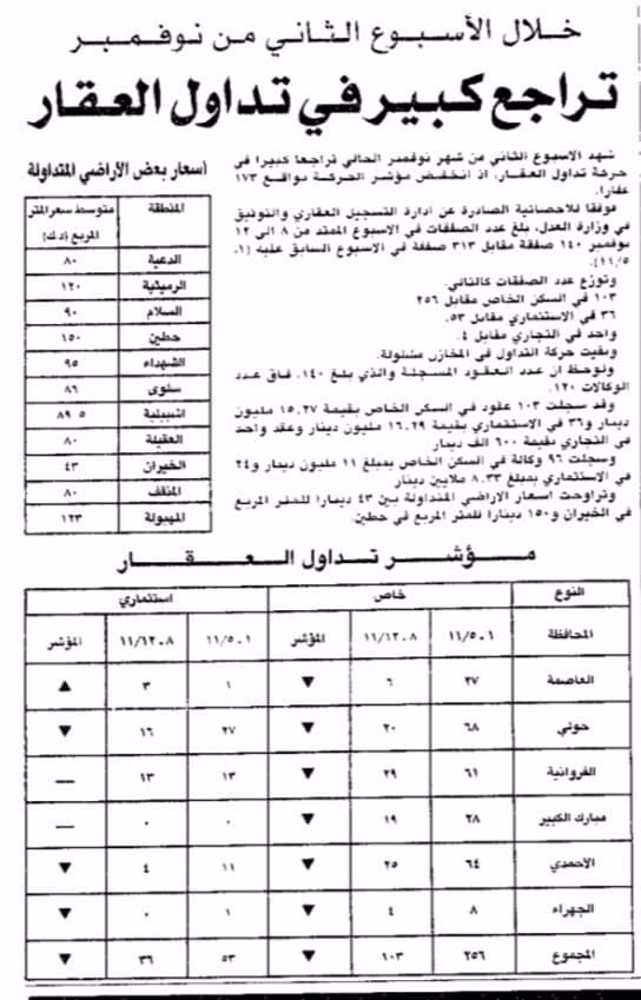 خلال الأسبوع الثاني من نوفمبر
تراجع كبير في تداول العقار
شهد الاسبوع الثاني من شهر نوفمبر الحالي تراجعا كبيرا في
حركة تداول العقار، اذ انخفض مؤشر الحركة بواقع ١٧٣
عقارا.
فوفقا للاحصائية الصادرة عن ادارة التسجيل العقاري والتوثيق
في وزارة العدل، بلغ عدد الصفقات في الاسبوع الممتد من ٨ الى ١٢
نوفمبر ١٤٠ صفقة مقابل ٣١٣ صفقة في الاسبوع السابق عليه (١ـ
١١/٥).
وتوزع عدد الصفقات كالتالي:
١٠٣ في السكن الخاص مقابل ٢٥٦
٣٦ في الاستثماري مقابل ٥٣.
واحد في التجاري مقابل ٤.
وبقيت حركة التداول في المخازن مشلولة.
ولوحظ ان عدد العقود المسجلة والذي بلغ ١٤٠، فاق عدد
الوكالات ١٢٠.
وقد سجلت ١٠٣ عقود في السكن الخاص بقيمة ١٥,٢٧ مليون
دينار و٣٦ في الاستثماري بقيمة ١٦,٢٩ مليون دينار وعقد واحد
في التجاري بقيمة ٦٠٠ الف دينار
وسجلت ٩٦ وكالة في السكن الخاص بمبلغ ١١ مليون دينار و٢٤
في الاستثماري بمبلغ ٨,٣٣ ملايين دينار
وتراوحت اسعار الاراضي المتداولة بين ٤٣ دينارا للمتر المربع
في الخيران و١٥٠ دينارا للمتر المربع في حطين.
أسعار بعض الأراضي المتداولة
المنطقة متوسط سعر المتر المربع (د.ك)
الدعية ٨٠
الرميثية ١٢٠
السلام ٩٠
حطين ١٥٠
الشهداء ٩٥
سلوى ٨٦
اشبيلية ٨٩٫٥
العقيلة ٨٠
الخيران ٤٣
المنقف ٨٠
المهبولة ١٢٣
مؤشر تداول العقار
النوع خاص استثماري
المحافظة ١ـ١١/٥ ٨ـ١١/١٢ المؤشر ١ـ١١/٥ ٨ـ١١/١٢ المؤشر
العاصمة ٢٧ ٦ ▼ ١ ٣ ▲
حولي ٦٨ ٢٠ ▼ ٢٧ ١٦ ▼
الفروانية ٦١ ٢٩ ▼ ١٣ ١٣ —
مبارك الكبير ٢٨ ١٩ ▼ ٠ ٠ —
الأحمدي ٦٤ ٢٥ ▼ ١١ ٤ ▼
الجهراء ٨ ٤ ▼ ١ ٠ ▼
المجموع ٢٥٦ ١٠٣ ▼ ٥٣ ٣٦ ▼